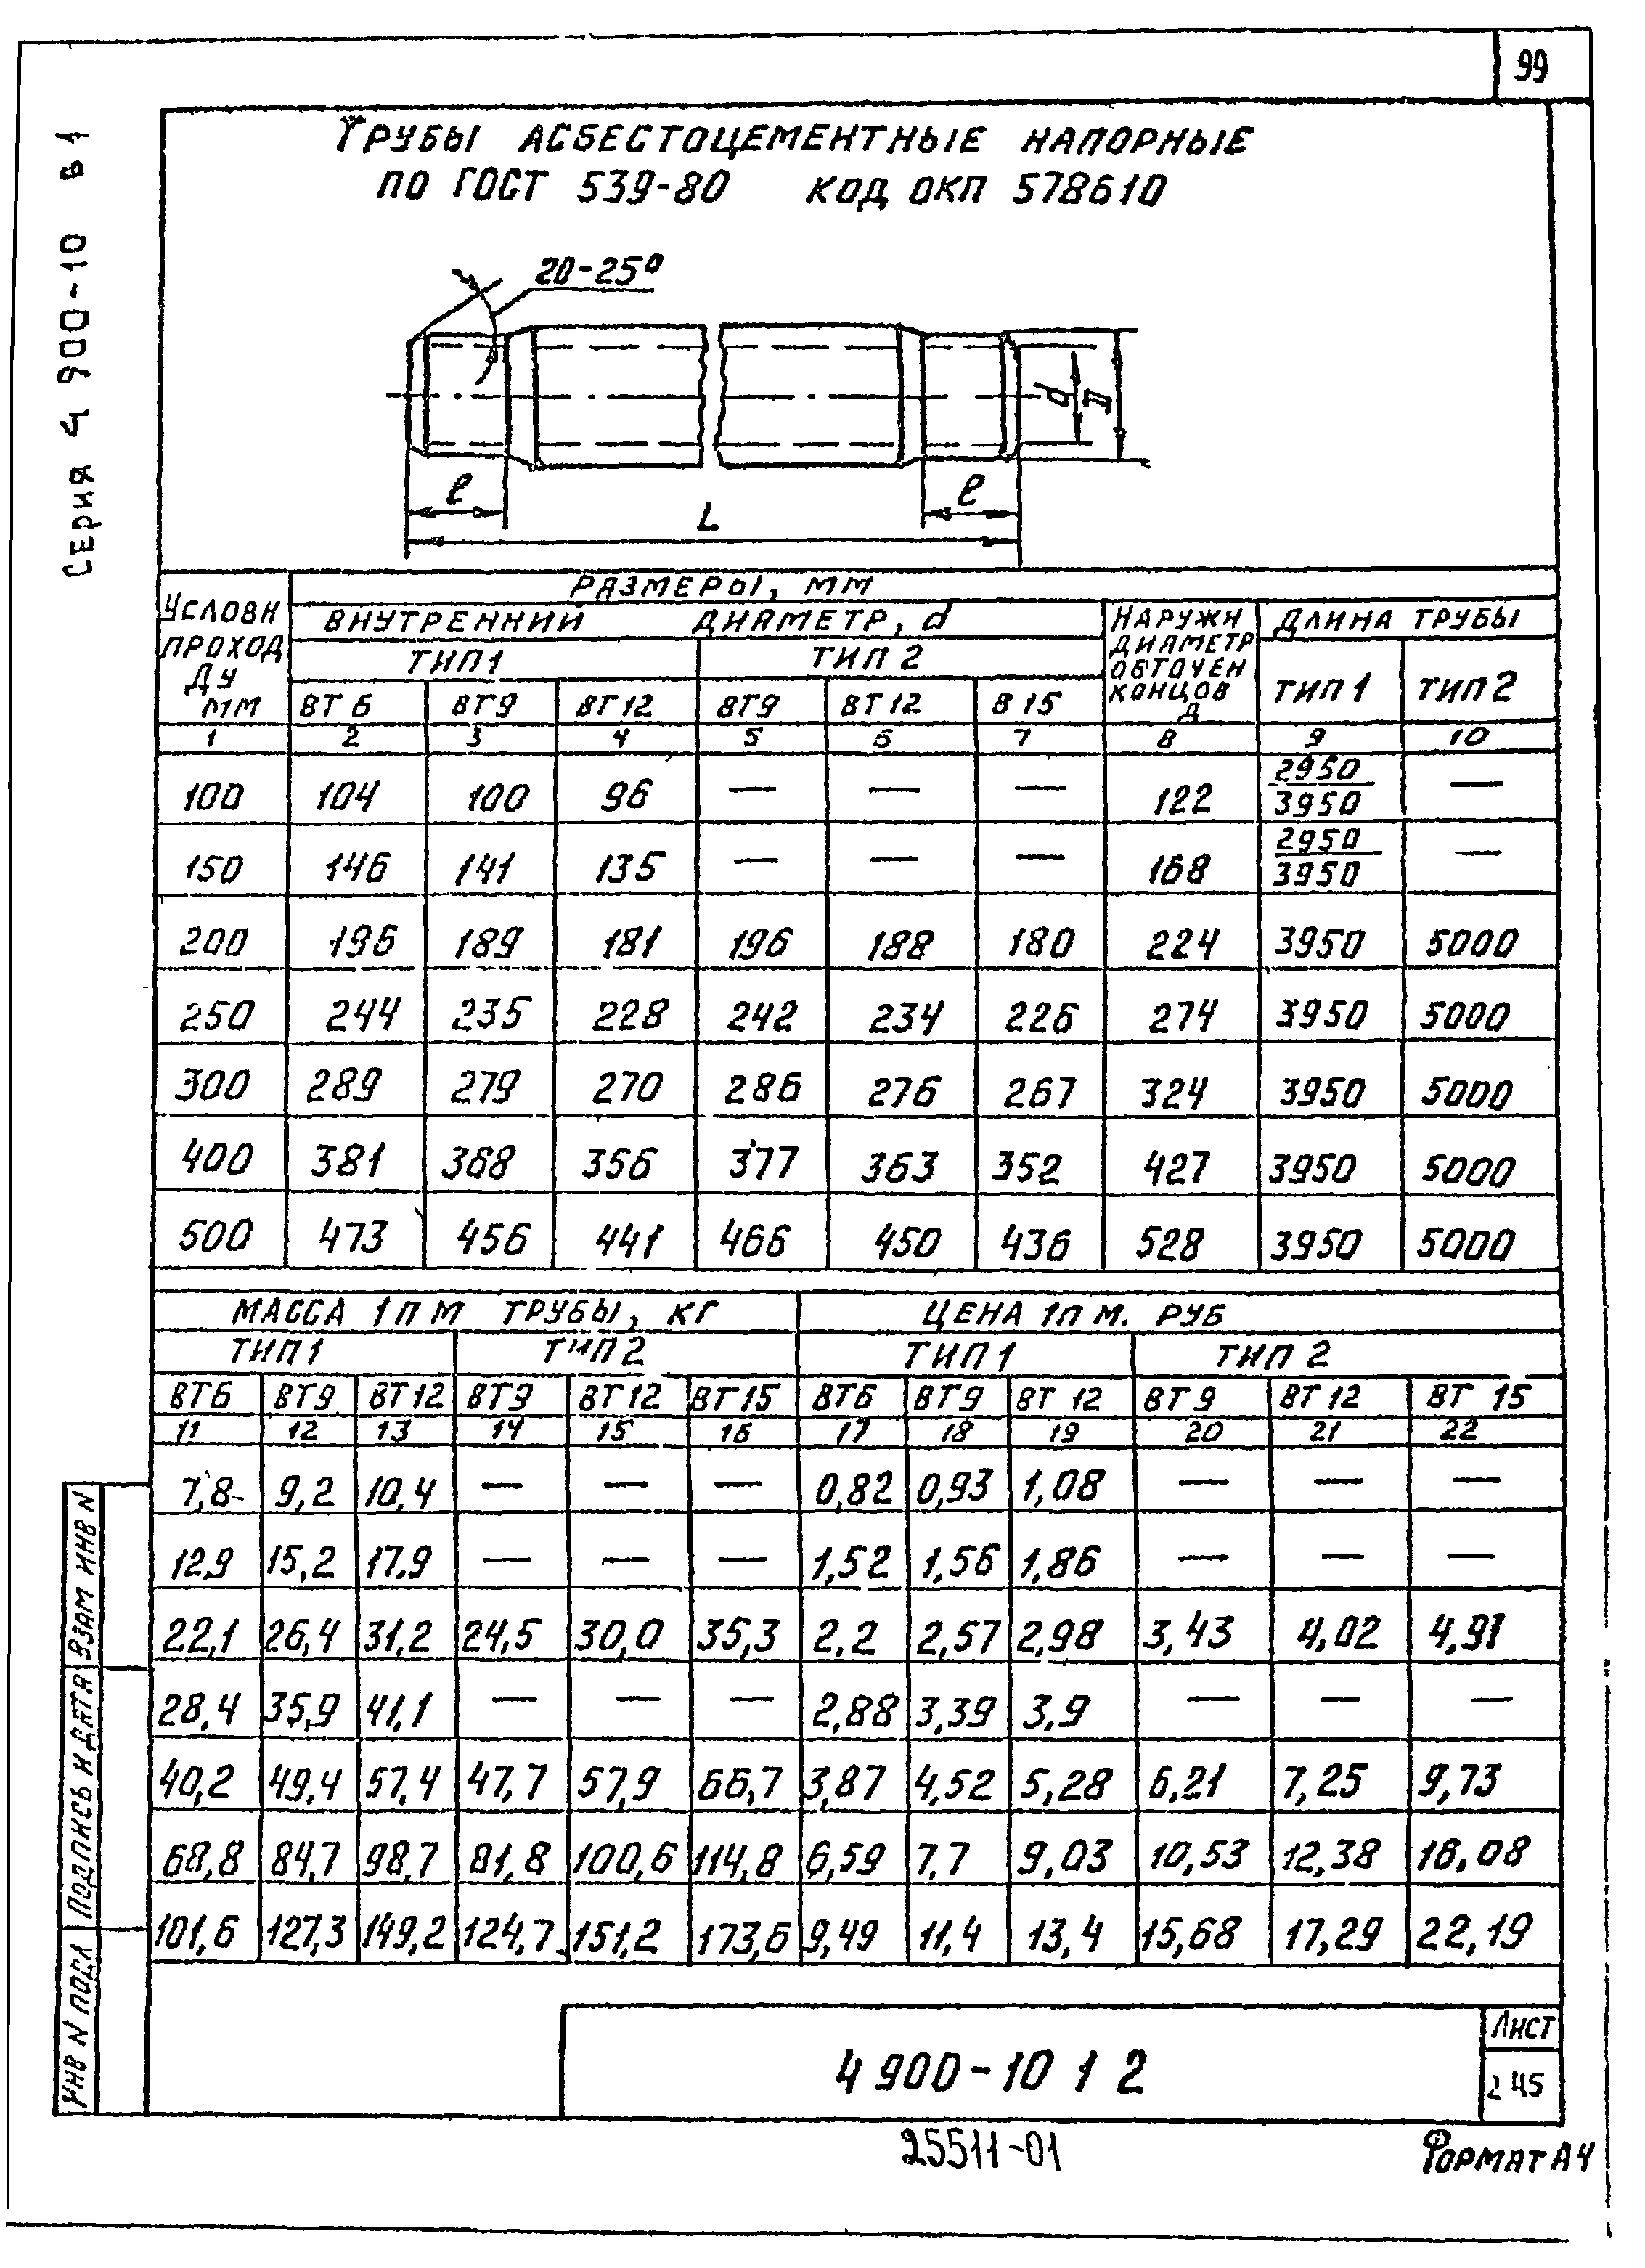 99
Серия 4 900-10 в 1
ТРУБЫ АСБЕСТОЦЕМЕНТНЫЕ НАПОРНЫЕ
ПО ГОСТ 539-80 КОД ОКП 578610
20-25°
d D
ℓ L ℓ
УСЛОВН ПРОХОД ДУ ММ
РАЗМЕРЫ, ММ
ВНУТРЕННИЙ ДИАМЕТР, d
НАРУЖН ДИАМЕТР ОБТОЧЕН КОНЦОВ Д
ДЛИНА ТРУБЫ
ТИП 1 ТИП 2 ТИП 1 ТИП 2
ВТ 6 ВТ9 ВТ 12 ВТ9 ВТ 12 В 15
1 2 3 4 5 6 7 8 9 10
100 104 100 96 — — — 122 2950/3950 —
150 146 141 135 — — — 168 2950/3950 —
200 196 189 181 196 188 180 224 3950 5000
250 244 235 228 242 234 226 274 3950 5000
300 289 279 270 286 276 267 324 3950 5000
400 381 368 356 377 363 352 427 3950 5000
500 473 456 441 466 450 436 528 3950 5000
МАССА 1 П М ТРУБЫ, КГ ЦЕНА 1П М. РУБ
ТИП 1 ТИП 2 ТИП 1 ТИП 2
ВТ6 ВТ9 ВТ12 ВТ9 ВТ12 ВТ15 ВТ6 ВТ9 ВТ 12 ВТ 9 ВТ 12 ВТ 15
11 12 13 14 15 16 17 18 19 20 21 22
7,8 9,2 10,4 — — — 0,82 0,93 1,08 — — —
12,9 15,2 17.9 — — — 1,52 1,56 1,86 — — —
22,1 26,4 31,2 24,5 30,0 35,3 2,2 2,57 2,98 3,43 4,02 4,91
28,4 35,9 41,1 — — — 2,88 3,39 3,9 — — —
40,2 49,4 57,4 47,7 57,9 66,7 3,87 4,52 5,28 6,21 7,25 9,73
68,8 84,7 98,7 81,8 100,6 114,8 6,59 7,7 9,03 10,53 12,38 16,08
101,6 127,3 149,2 124,7 151,2 173,6 9,49 11,4 13,4 15,68 17,29 22,19
ВЗАМ ИНВ N
ПОДПИСЬ И ДАТА
ИНВ N ПОДЛ
4 900-10 1 2
ЛИСТ
245
25511-01
ФОРМАТ А4